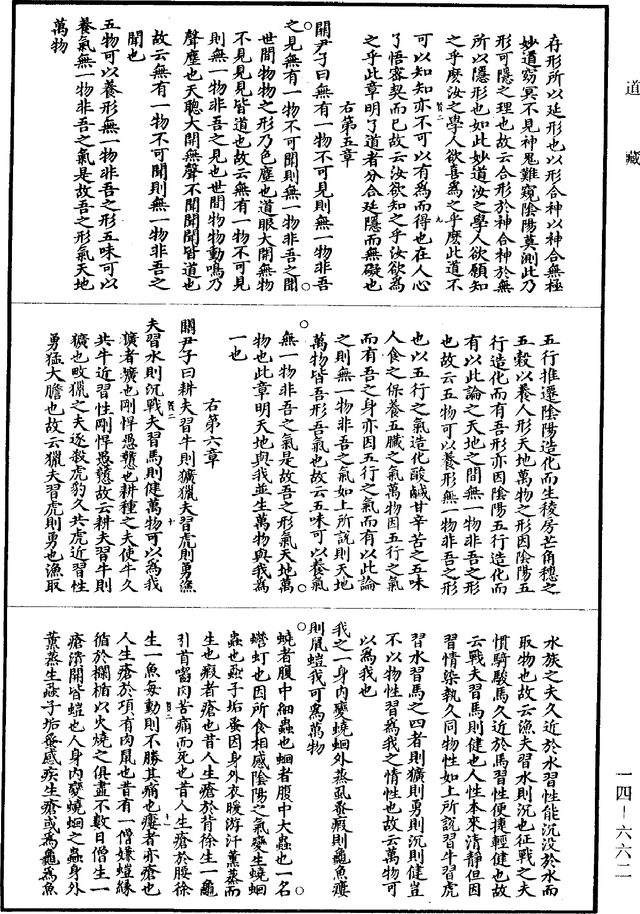 道藏
存形所以延形也以形合神以神合無極
妙道窈冥不見神鬼難窺陰陽莫測此乃
形可隱之理也故云合形於神合神於無
所以隱形也如此妙道汝之學人欲願知
之乎麼汝之學人欲喜為之乎麼此道不
可以知知亦不可以有為而得也在人心
了悟密契而已故云汝欲知之乎汝欲為
之乎此章明了道者分合延隱而無礙也
右第五章
關尹子曰無有一物不可見則無一物非吾
之見無有一物不可聞則無一物非吾之聞
世間物物之形乃色塵也道眼大開無物
不見見見皆道也故云無有一物不可見
則無一物非吾之見也世間物物動鳴乃
聲塵也天聰大開無聲不聞聞聞皆道也
故云無有一物不可聞則無一物非吾之
聞也
五物可以養形無一物非吾之形五味可以
養氣無一物非吾之氣是故吾之形氣天地
萬物
五行推遷陰陽造化而生稜房芒角穗之
五穀以養人形天地萬物之形因陰陽五
行造化而有吾形亦因陰陽五行造化而
有以此論之天地之間無一物非吾之形
也故云五物可以養形無一物非吾之形
也以五行之氣造化酸鹹甘辛苦之五味
人食之保養五臟之氣萬物因五行之氣
而有吾之身亦因五行之氣而有以此論
之則無一物非吾之氣如上所說則天地
萬物皆吾形吾氣也故云五味可以養氣
無一物非吾之氣是故吾之形氣天地萬
物也此章明天地與我並生萬物與我為
一也
右第六章
關尹子曰耕夫習牛則獷獵夫習虎則勇漁
夫習水則沉戰夫習馬則健萬物可以為我
獷者獷也剛悍愚戇也耕種之夫使牛久
共牛近習性剛悍愚戇故云耕夫習牛則
獷也畋獵之夫逐殺虎豹久共虎近習性
勇猛大膽也故云獵夫習虎則勇也漁取
水族之夫久近於水習性能沉没於水而
取物也故云漁夫習水則沉也征戰之夫
慣騎駿馬久近於馬習性便捷輕健也故
云戰夫習馬則健也人性本來清靜但因
習情染執久同物性如上所說習牛習虎
習水習馬之四者則獷則勇則沉則健豈
不以物性習為我之情性也故云萬物可
以為我也
我之一身內變蟯蛔外蒸虱蚤瘕則龜魚瘻
則鼠螘我可為萬物
蟯者腹中細蟲也蛔者腹中大蟲也一名
蟦虰也因所食相感陰陽之氣變生蟯蛔
蟲也虱子垢蚤因身外衣暖游汗薰蒸而
生也瘕者瘡也昔人生瘡於背徐生一龜
引首囓肉苦痛而死也昔人生瘡於腰徐
生一魚每動則不勝其痛也瘻者亦瘡也
人生瘡於項有肉鼠也昔有一僧嫌螘緣
循於欄楯以火燒之俱盡不數日僧生一
瘡潰開皆螘也人身內變蟯蛔之蟲身外
薰蒸生虱子垢蚤感疾生瘡或為龜為魚
賢二 九
賢二 十
賢二 十一
一四－六六二